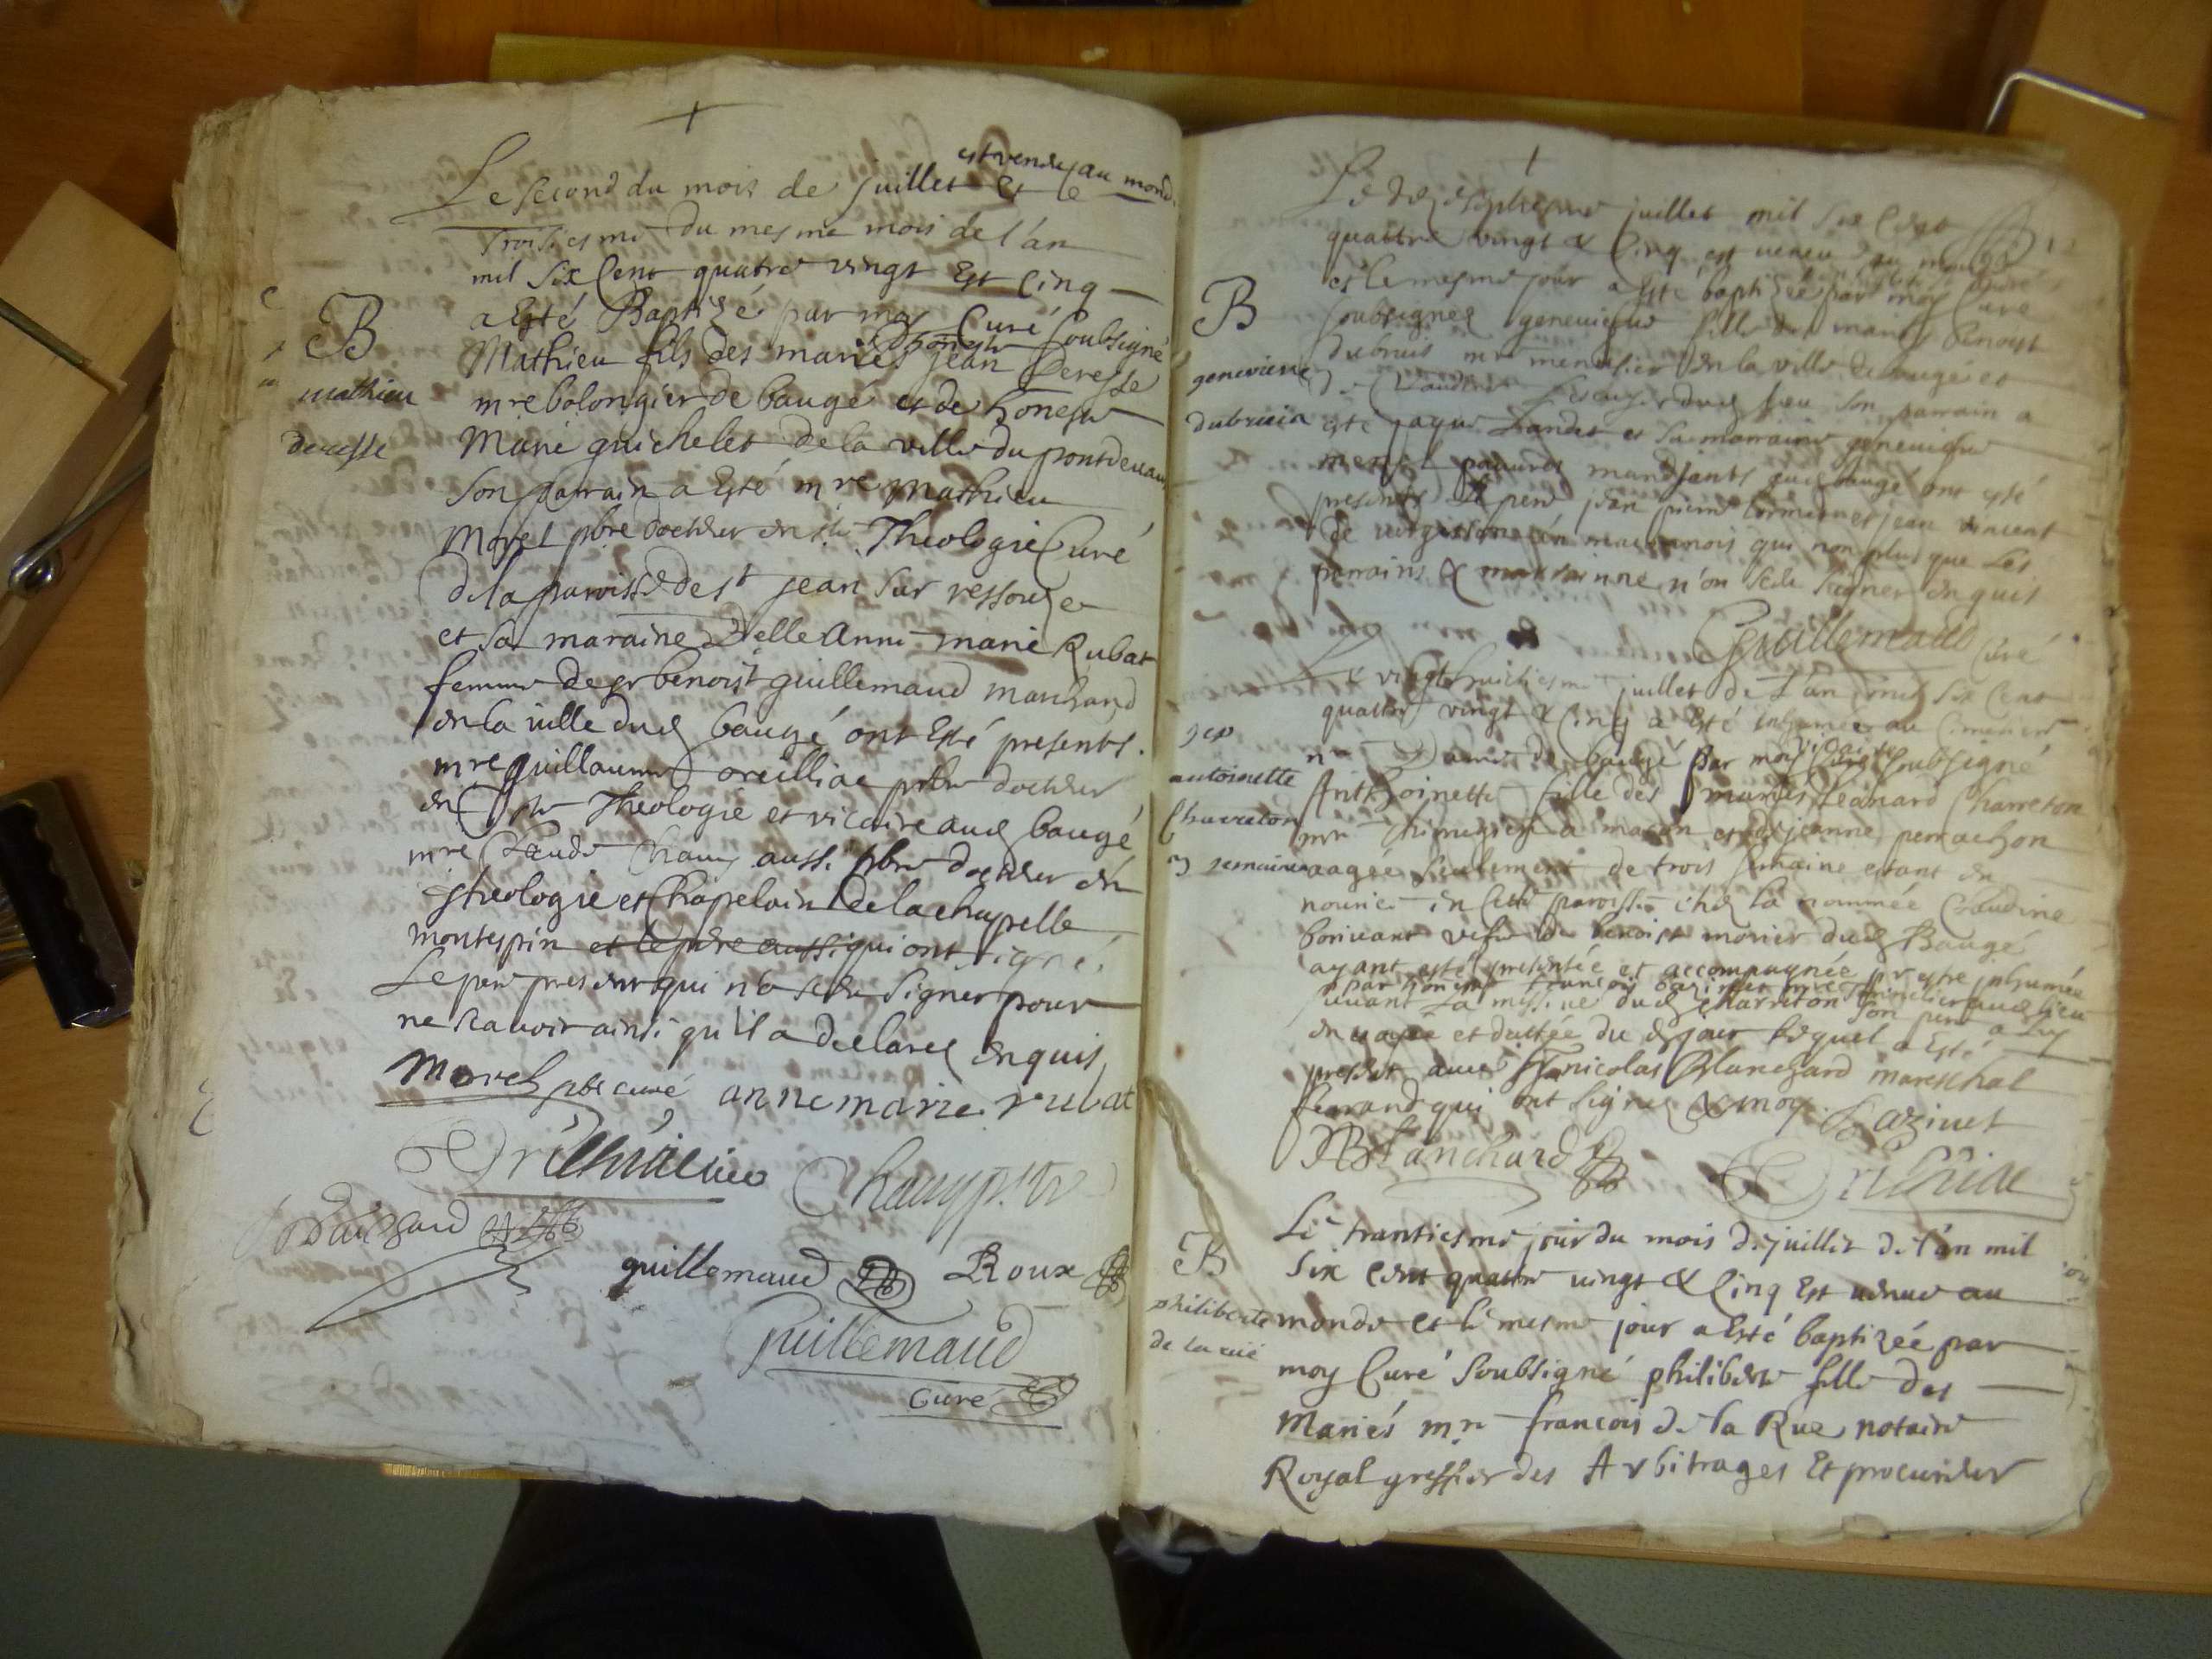 est venu au mond.
Le second du mois de juillet et le
troisiesme du mesme mois de l'an
mil six cent quatre vingt Est cinq
a Esté Baptizé par moy Curé soubsigné
B
mathieu
deresse
Mathieu fils des mariés honeste jean Deresse
mre bolongier de baugé et de honeste
Marie guichelet de la ville du pontdevaux
son parrain a Esté mre Mathieu
Morel pbre docteur en ste Theologie Curé
de la paroisse de st jean sur ressouze
et sa maraine delle Anne marie Rubat
femme de sr benoist guillemaud marchand
en la ville dud baugé ont Esté presents.
mre guillaume oreilliac pbre docteur
en ste Theologie et vicaire aud baugé
mre Claude Chany aussi pbre docteur en
theologie et Chapelain de la chapelle
montespin et le pere aussi qui ont signé.
Le pere present qui n'a sceu signer pour
ne scavoir ainsi qu'il a declaré enquis
Morel pbre curé anne marie rubat
Chany pbtr
guillemaud Roux
Guillemaud
Curé
Le dezseptiesme juillet mil six cent
quattre vingt & Cinq est venue au monde
et le mesme jour a Esté baptizée par moy Curé
B
genevieve
soubsigné genevieve fille des mariés Benoist
mre menusier en la ville de baugé et
son parrain a
esté jaque Landet et sa marraine genevieve
pauvres mandiants aud baugé ont esté
presents le pere jean pierre et jean vincent
qui non plus que les
parrains & marrainne n'on sceu signer enquis
Guillemaud Curé
Le vingthuictiesme juillet de l'an mil six cent
quattre vingt & Cinq a Esté inhumée au Cimetier
de baugé par moy vicaire soubsigné
antoinette
Charreton
3 semaines
Anthoinette fille des mariés Leonard Charreton
mre Chirurgien a macon et de jeanne perrachon
aagée seulement de trois semaine estant en
nourice en cette paroisse chez la nommée Claudine
borivant vefve de benoist monier dud Baugé
ayant esté presentée et accompagnée pr estre inhumée
par honeste françois bazinet mre aud lieu
suivant la missive dud Charreton son pere a luy
envoyée et dattée du jour lequel a Esté
present avec nicolas Blanchard mareschal
ferrand qui ont signé & moy. Bazinet
NBlanchard
B
philiberte
de la rue
Le trantiesme jour du mois de juillet de l'an mil
six cent quattre vingt & Cinq Est venue au
monde et le mesme jour a Esté baptizée par
moy Curé soubsigné philiberte fille des
Mariés mre françois de la Rue notaire
Royal greffier des Arbitrages Et procureur